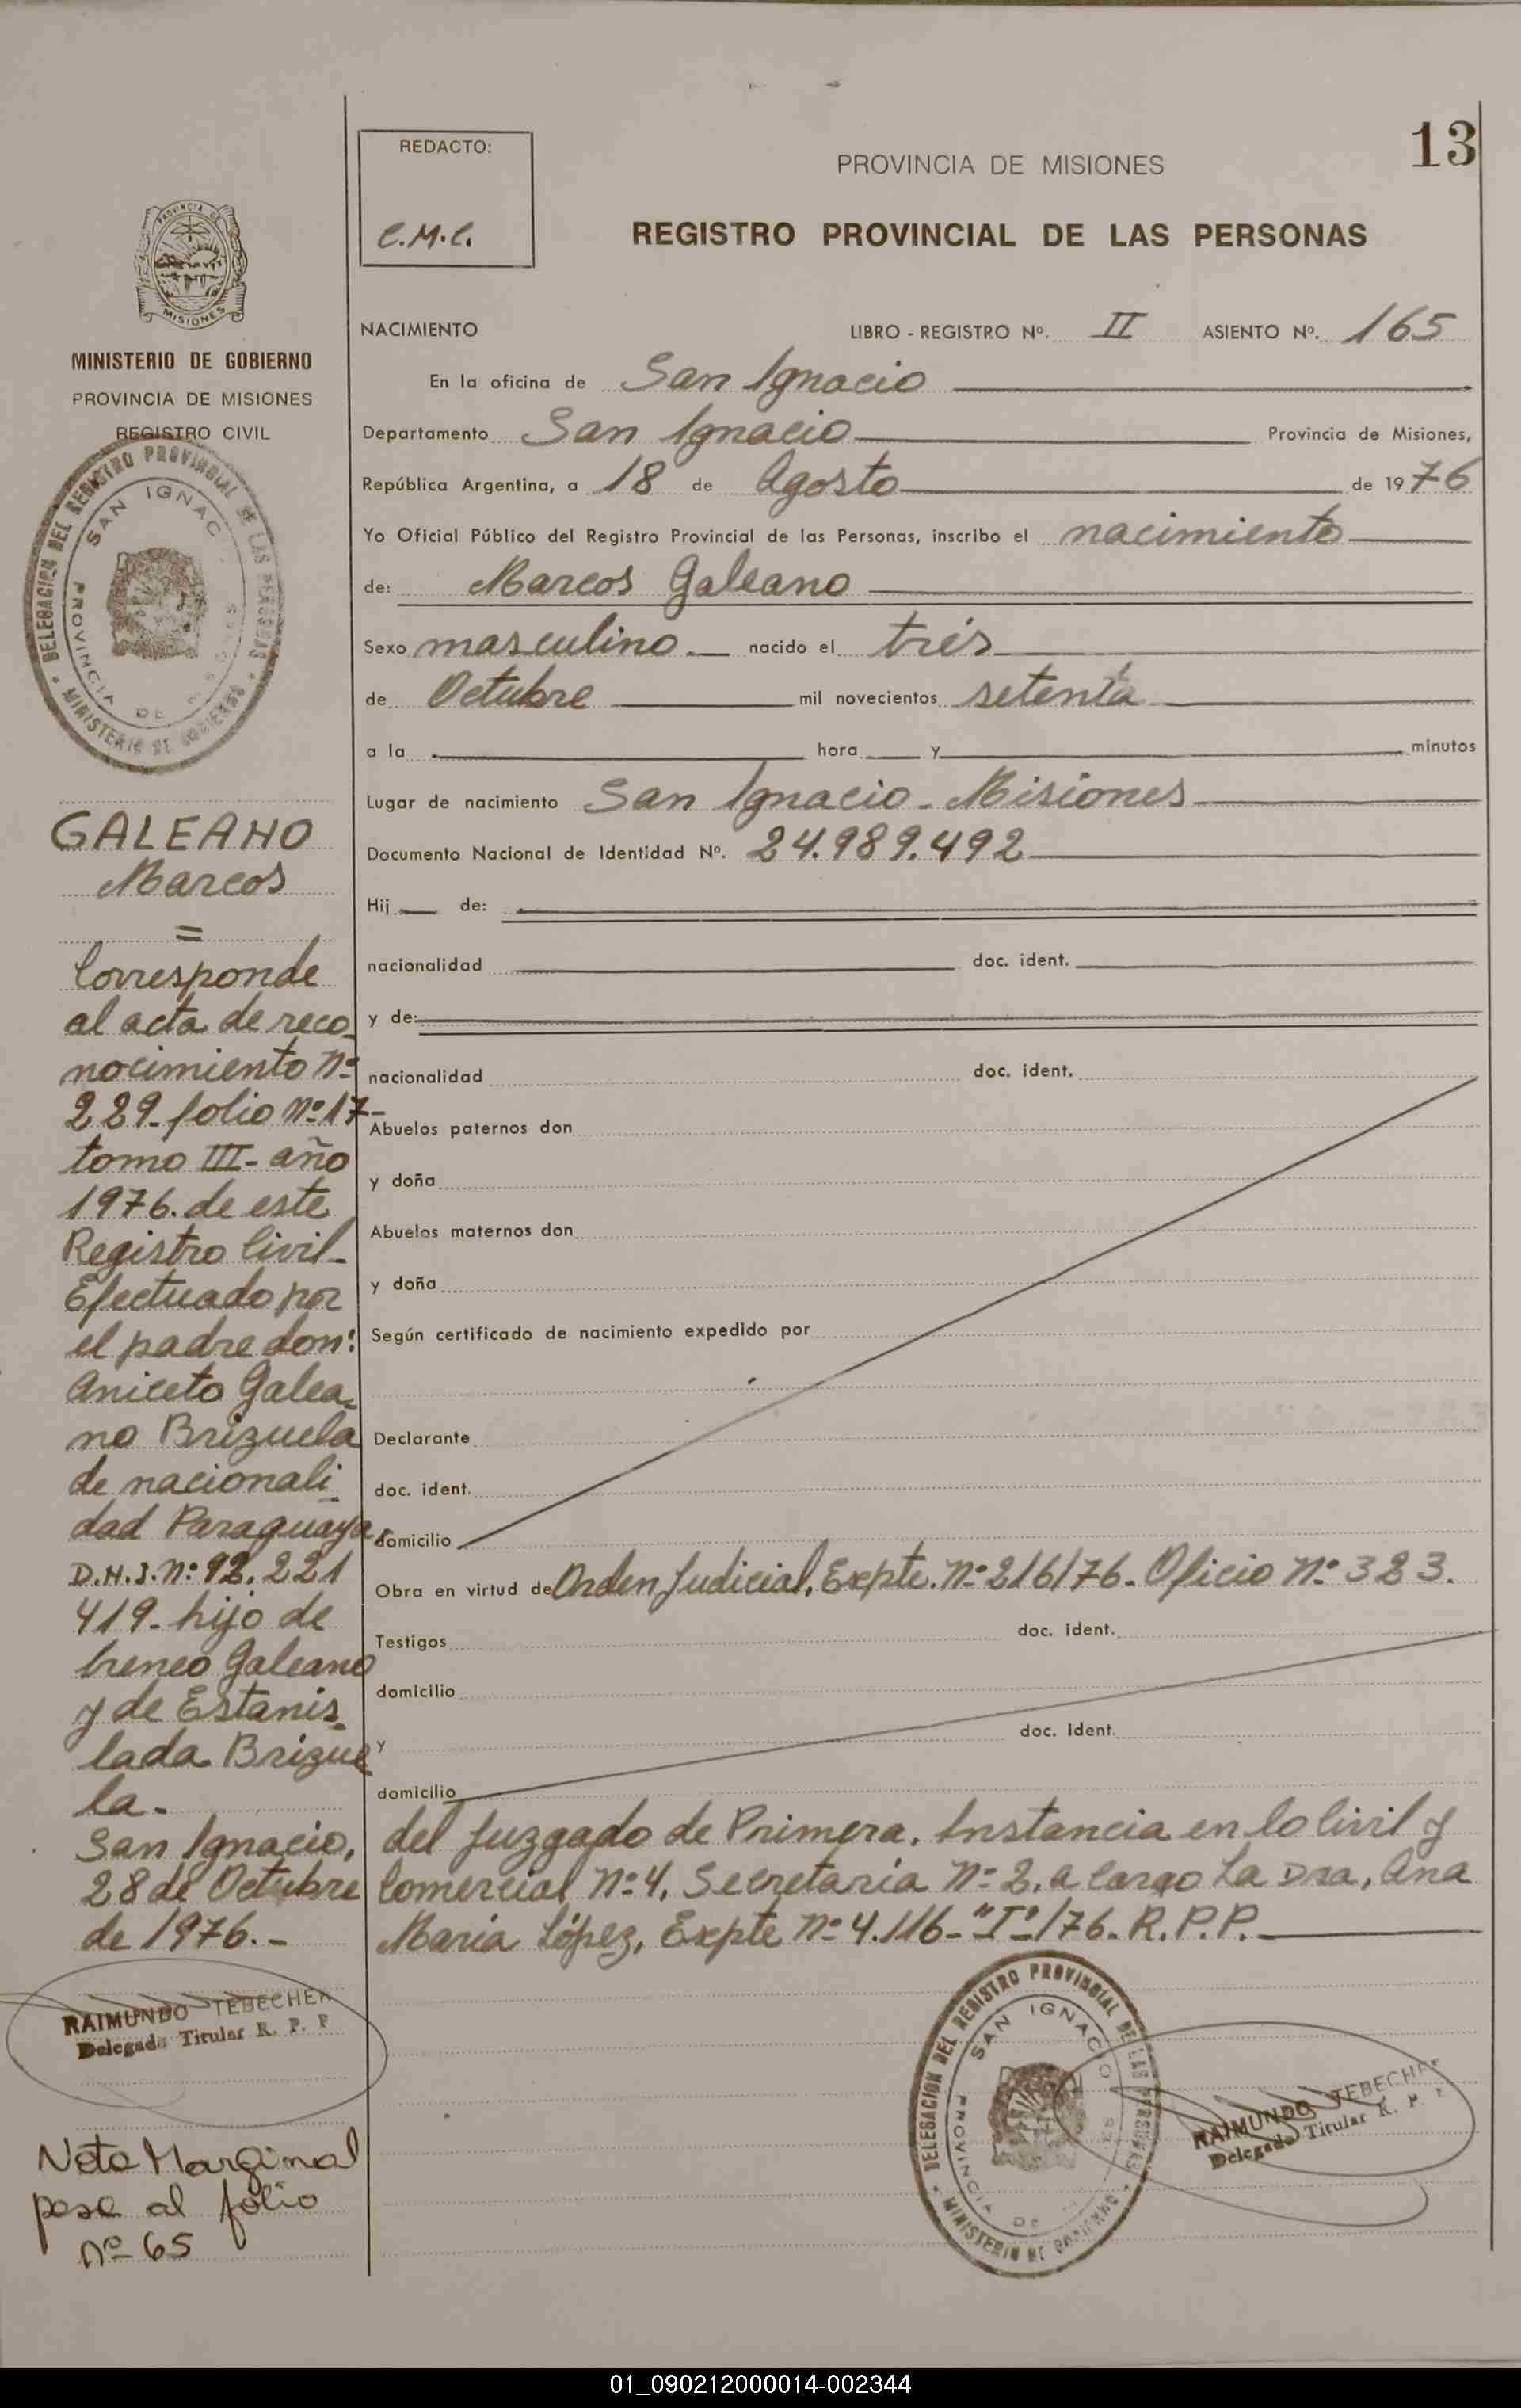 13
REDACTO:
C.M.C.
PROVINCIA DE MISIONES
REGISTRO PROVINCIAL DE LAS PERSONAS
NACIMIENTO LIBRO - REGISTRO Nº. II ASIENTO Nº. 165
En la oficina de San Ignacio
Departamento San Ignacio Provincia de Misiones,
República Argentina, a 18 de Agosto de 1976
Yo Oficial Público del Registro Provincial de las Personas, inscribo el nacimiento
de: Marcos Galeano
Sexo masculino. nacido el trés
de Octubre mil novecientos setenta
a la hora y minutos
Lugar de nacimiento San Ignacio - Misiones
Documento Nacional de Identidad Nº. 24.989.492
Hij de:
nacionalidad doc. ident.
y de:
nacionalidad doc. ident.
Abuelos paternos don
y doña
Abuelos maternos don
y doña
Según certificado de nacimiento expedido por
Declarante
doc. ident.
domicilio
Obra en virtud de Orden Judicial, Expte. nº 216/76. Oficio nº 323.
Testigos doc. ident.
domicilio
y doc. ident.
domicilio
del Juzgado de Primera. Instancia en lo Civil y
Comercial nº 4, Secretaria nº 2, a cargo La Dra, Ana
Maria López, Expte nº 4.116-"I"/76. R.P.P.
DELEGACION DEL REGISTRO PROVINCIAL DE LAS PERSONAS
SAN IGNACIO
PROVINCIA DE
MINISTERIO DE GOBIERNO
RAIMUNDO TEBECHER
Delegado Titular R. P. P.
PROVINCIA DE
MISIONES
MINISTERIO DE GOBIERNO
PROVINCIA DE MISIONES
REGISTRO CIVIL
DELEGACION DEL REGISTRO PROVINCIAL DE LAS PERSONAS
SAN IGNAC
PROVINCIA DE
MINISTERIO DE GOBIERNO
GALEANO
Marcos
=
Corresponde
al acta de reco
nocimiento nº
229- folio nº 17-
tomo III- año
1976. de este
Registro Civil-
Efectuado por
el padre don:
Aniceto Galea
no Brizuela
de nacionali
dad Paraguaya.
D.N.I. nº 92.221
419- hijo de
Ireneo Galeano
y de Estanis
lada Brizue
la.
San Ignacio,
28 de Octubre
de 1976.-
RAIMUNDO TEBECHER
Delegado Titular R. P. P
Nota Marginal
pasa al folio
nº 65
01_090212000014-002344